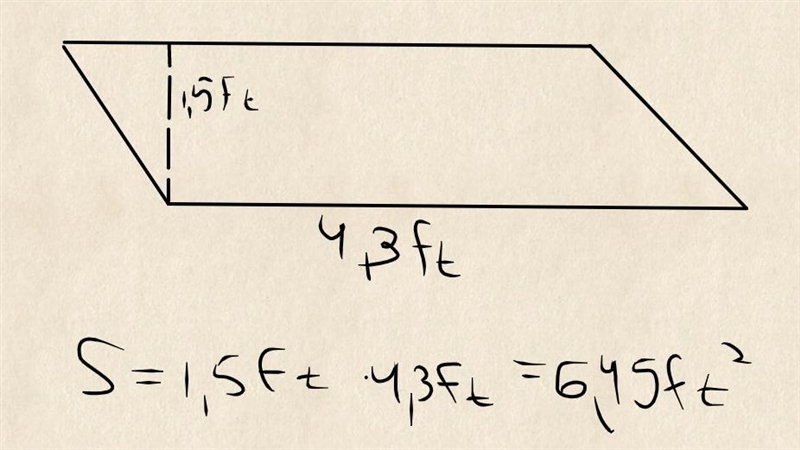 1,5ft
4,3ft
S = 1,5ft · 4,3ft = 6,45ft²